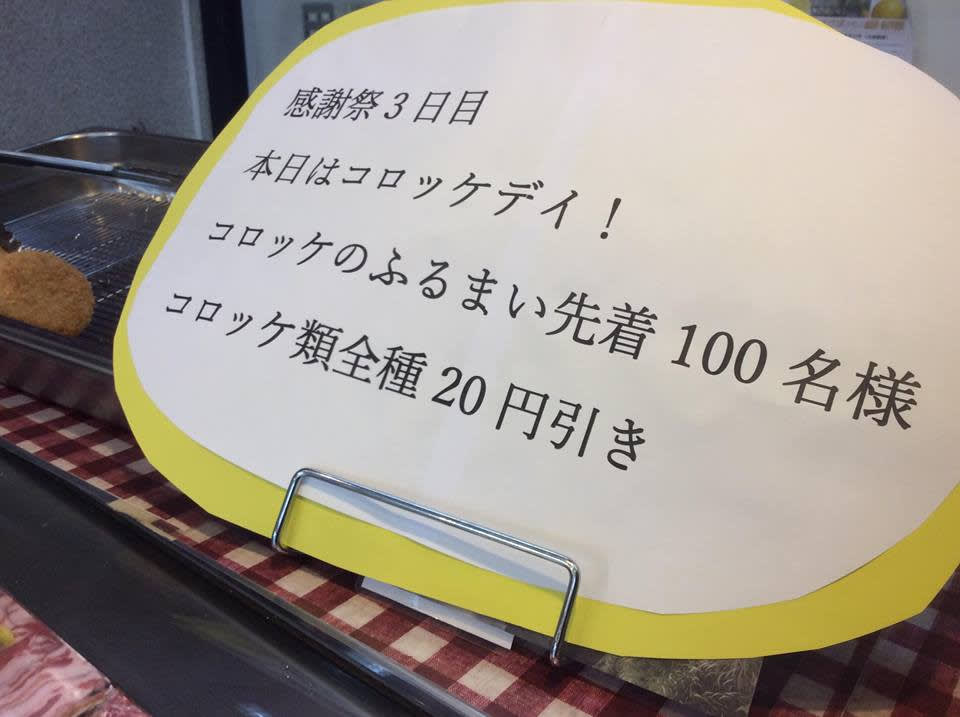 感謝祭3日目
本日はコロッケデイ！
コロッケのふるまい先着100名様
コロッケ類全種20円引き